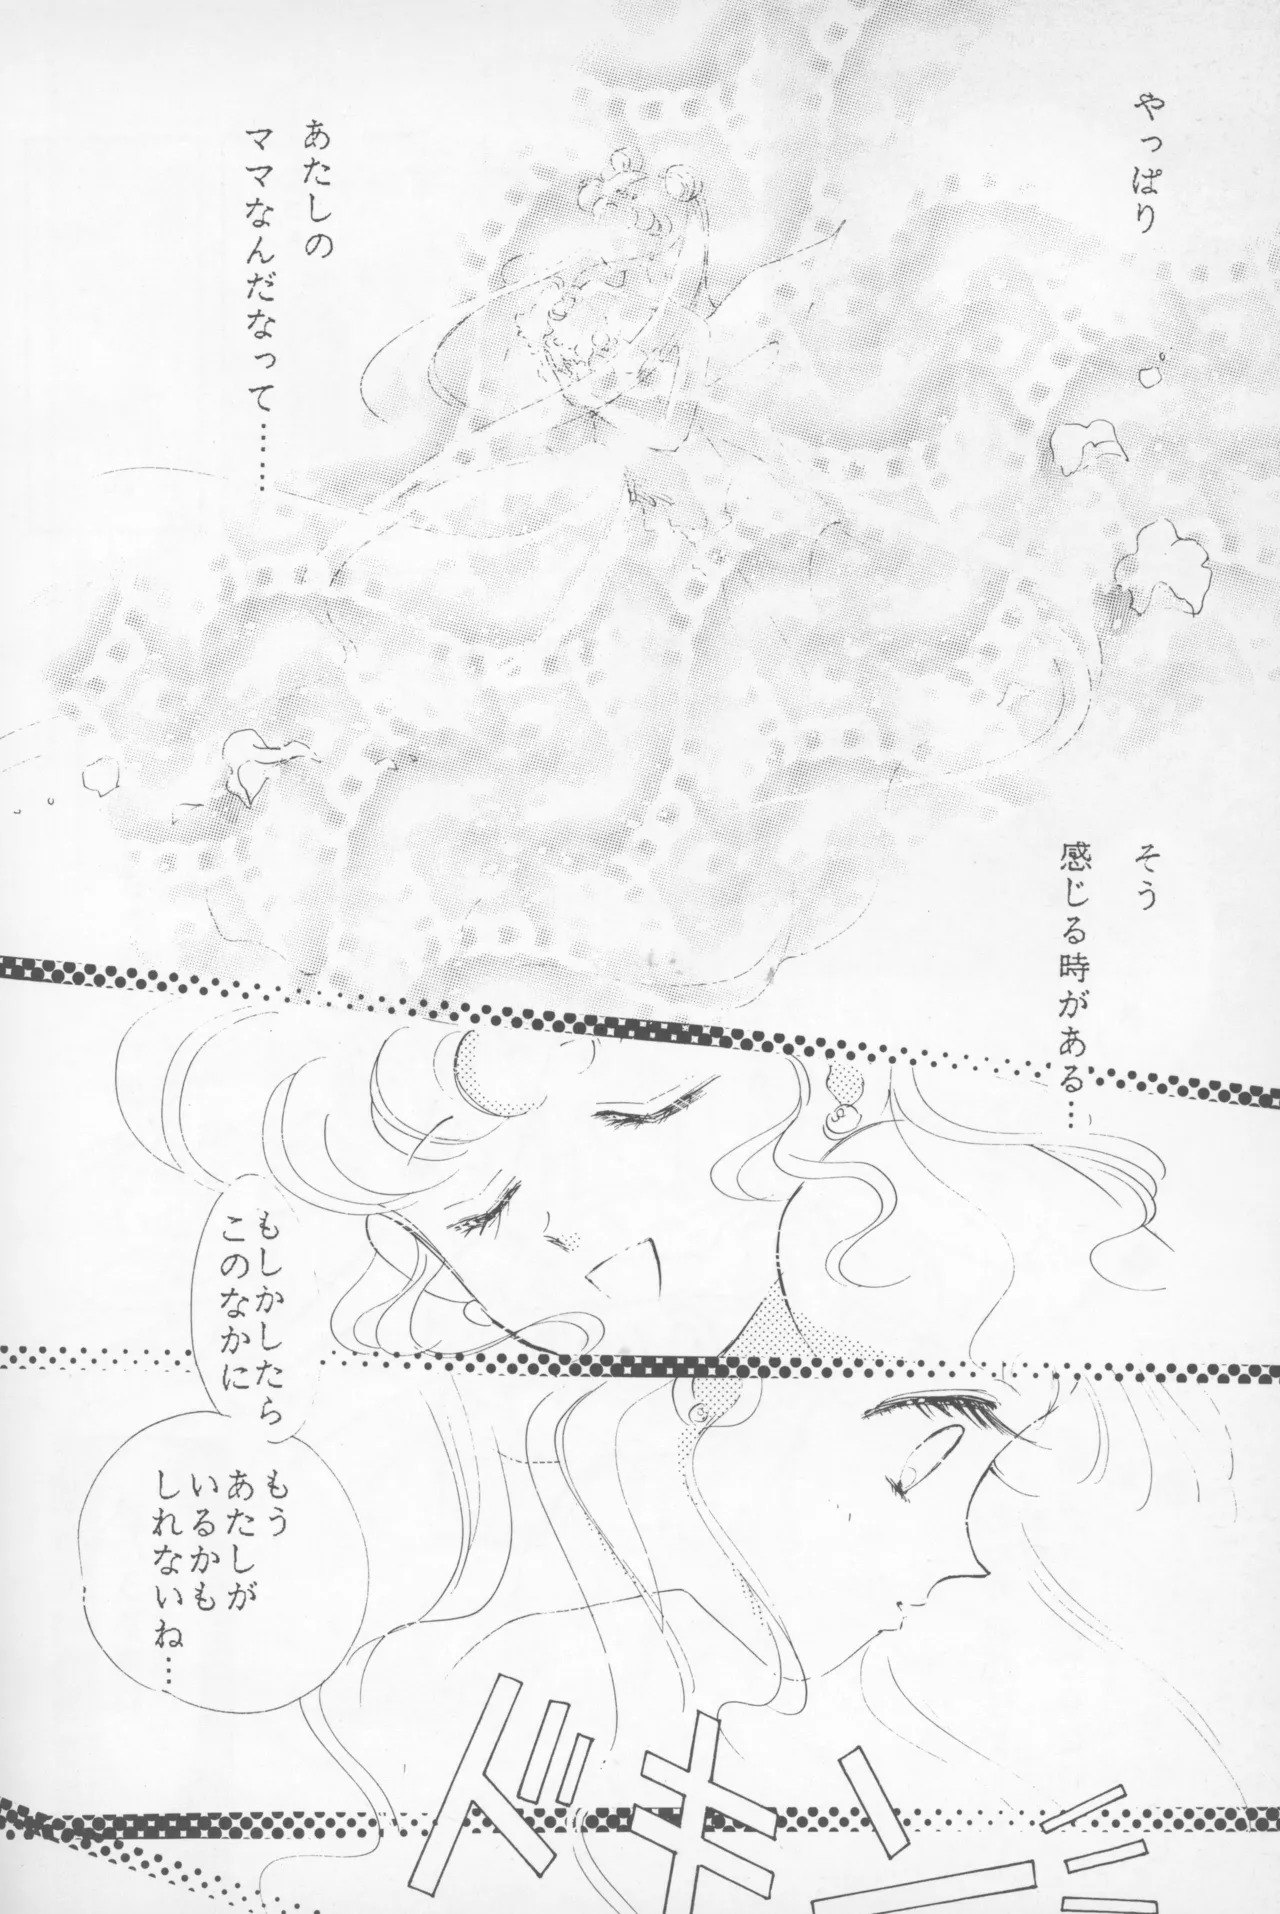 やっぱり
あたしの
ママなんだなって……
そう
感じる時がある…
もしかしたら
このなかに
もう
あたしが
いるかも
しれないね…
ドキンー